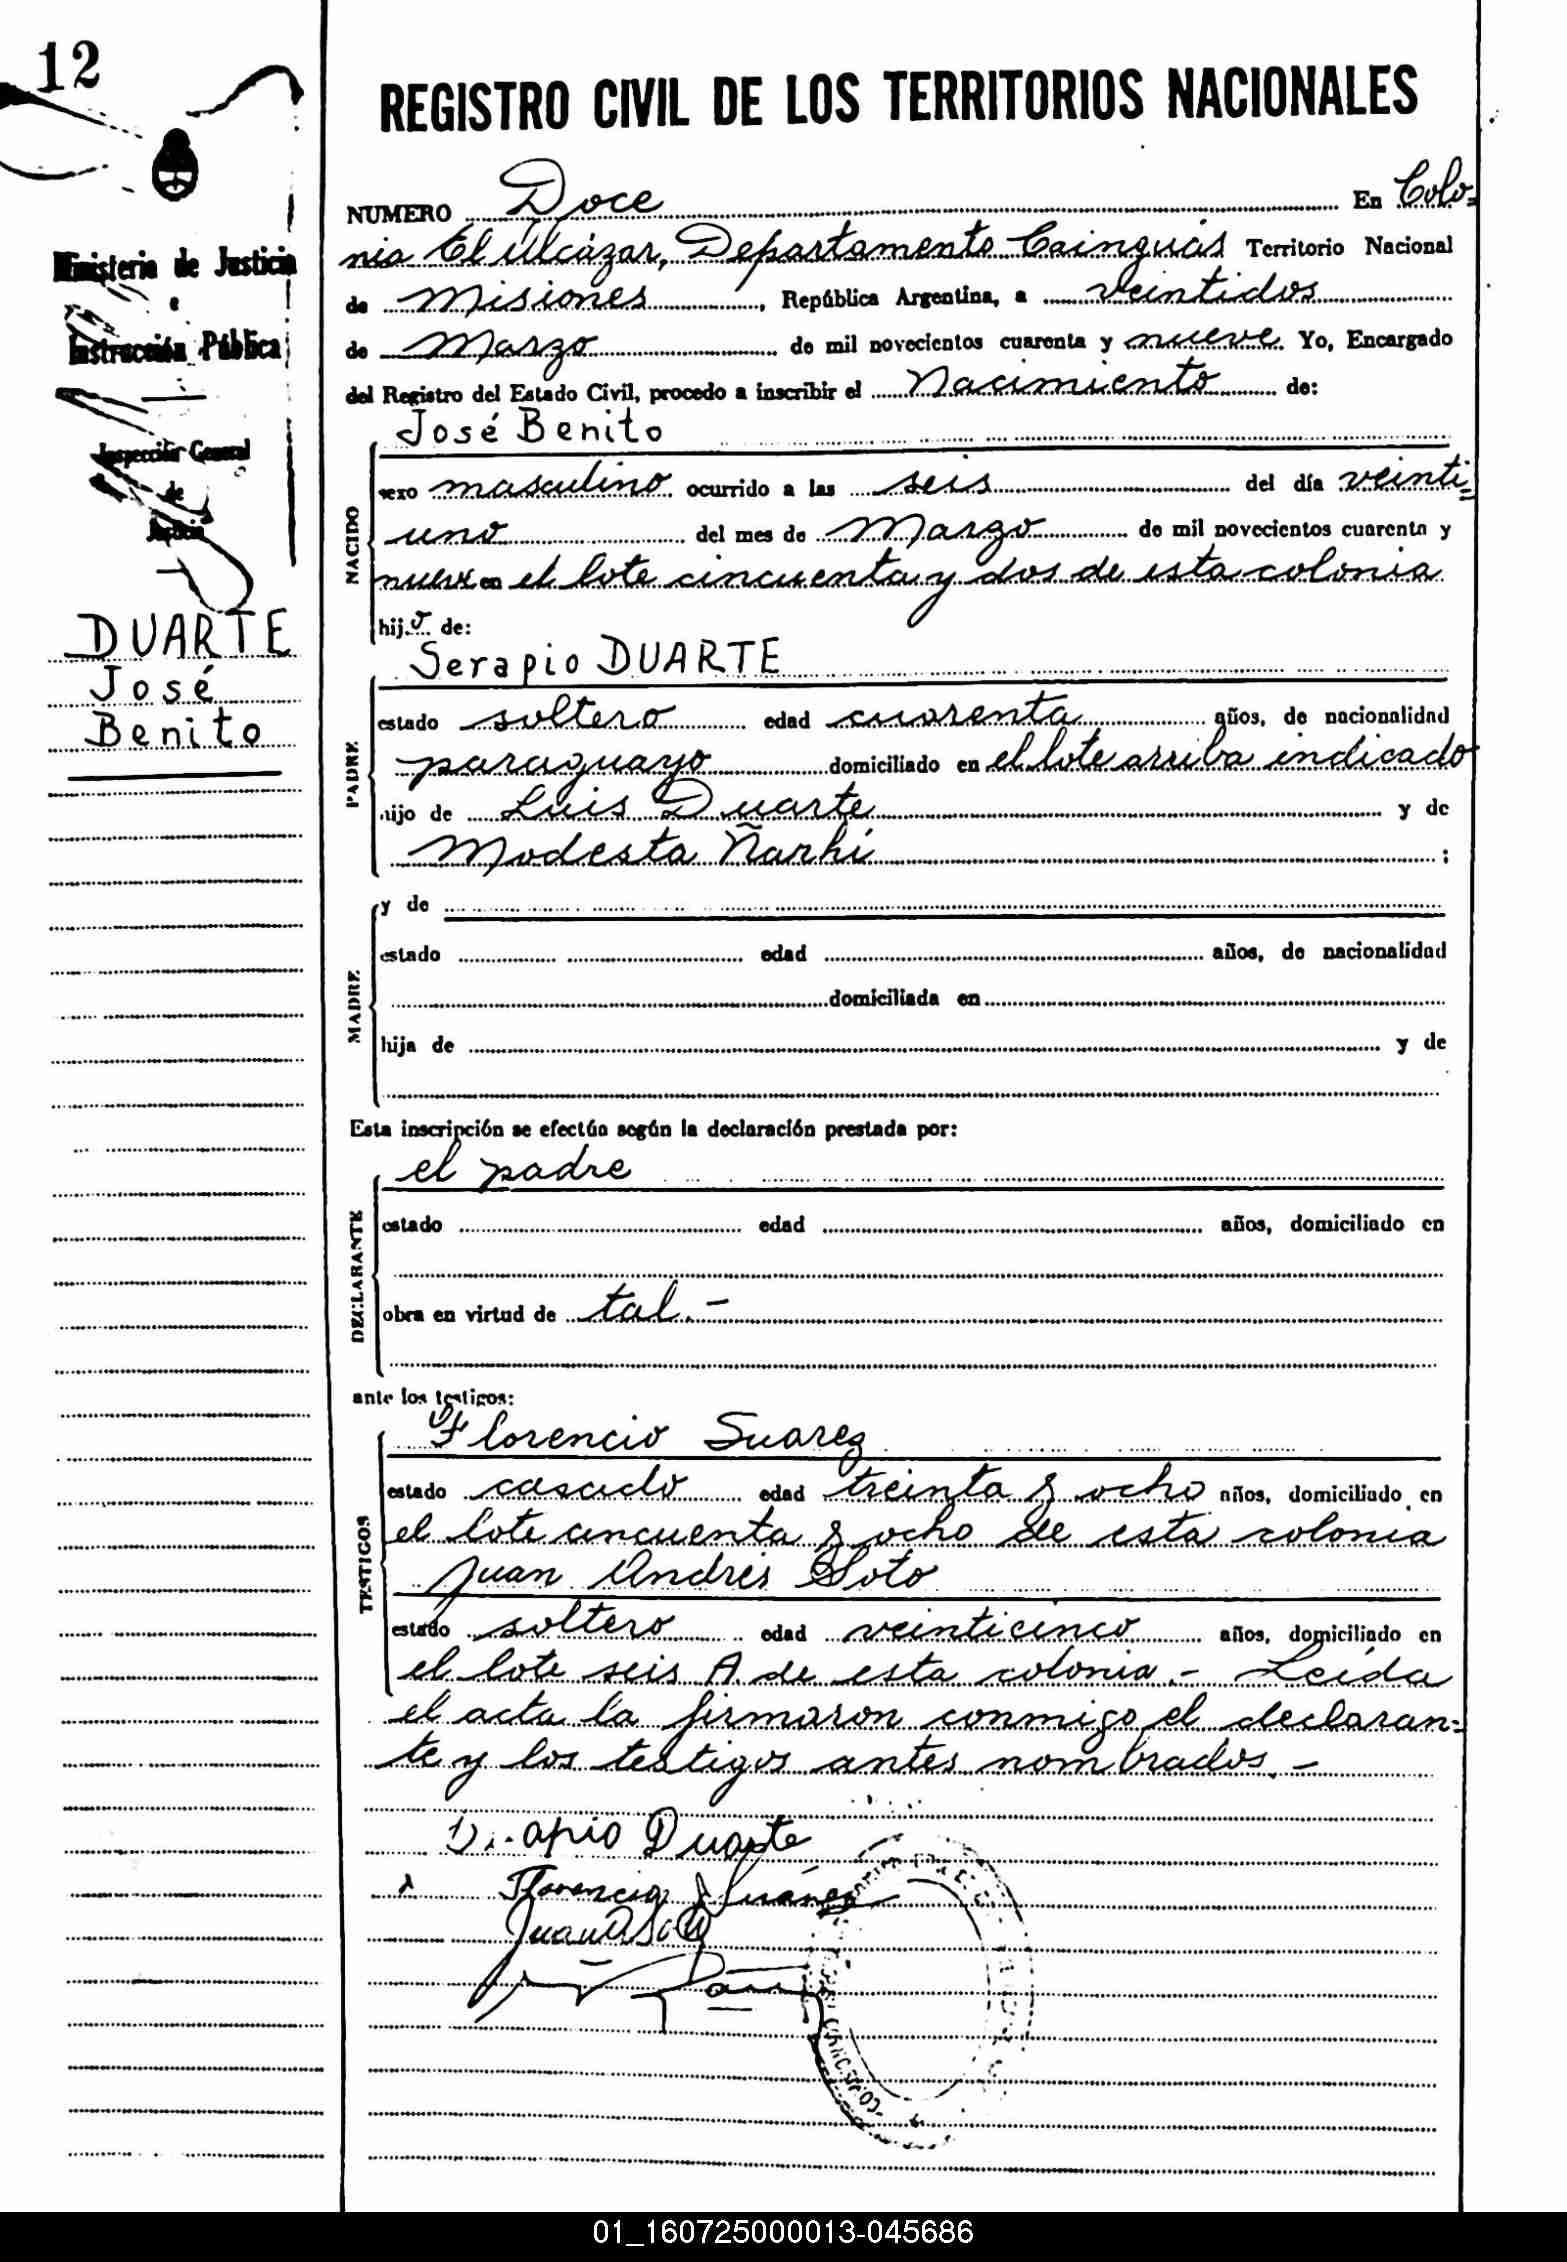 12
Ministerio de Justicia
e
Instrucción Pública
Inspección General
de
Justicia
DUARTE
José
Benito
REGISTRO CIVIL DE LOS TERRITORIOS NACIONALES
NUMERO Doce En Colo-
nia El Alcázar, Departamento Cainguás Territorio Nacional
de Misiones, República Argentina, a veintidos
de Marzo de mil novecientos cuarenta y nueve. Yo, Encargado
del Registro del Estado Civil, procedo a inscribir el Nacimiento de:
José Benito
NACIDO
sexo masculino ocurrido a las seis del día veinti-
uno del mes de Marzo de mil novecientos cuarenta y
nueve en el lote cincuenta y dos de esta colonia
hijo de:
Serapio DUARTE
PADRE
estado soltero edad cuarenta años, de nacionalidad
paraguayo domiciliado en el lote arriba indicado
hijo de Luis Duarte y de
Modesta Ñarhi ;
MADRE
y de
estado edad años, de nacionalidad
domiciliada en
hija de y de
Esta inscripción se efectúa según la declaración prestada por:
el padre
DECLARANTE
estado edad años, domiciliado en
obra en virtud de tal.-
ante los testigos:
Florencio Suarez
TESTIGOS
estado casado edad treinta y ocho años, domiciliado en
el lote cincuenta y ocho de esta colonia
Juan Andrés Soto
estado soltero edad veinticinco años, domiciliado en
el lote seis A. de esta colonia.- Leída
el acta la firmaron conmigo el declaran-
te y los testigos antes nombrados.-
Duarte
Florencio Suárez
Juan A Soto
01_160725000013-045686